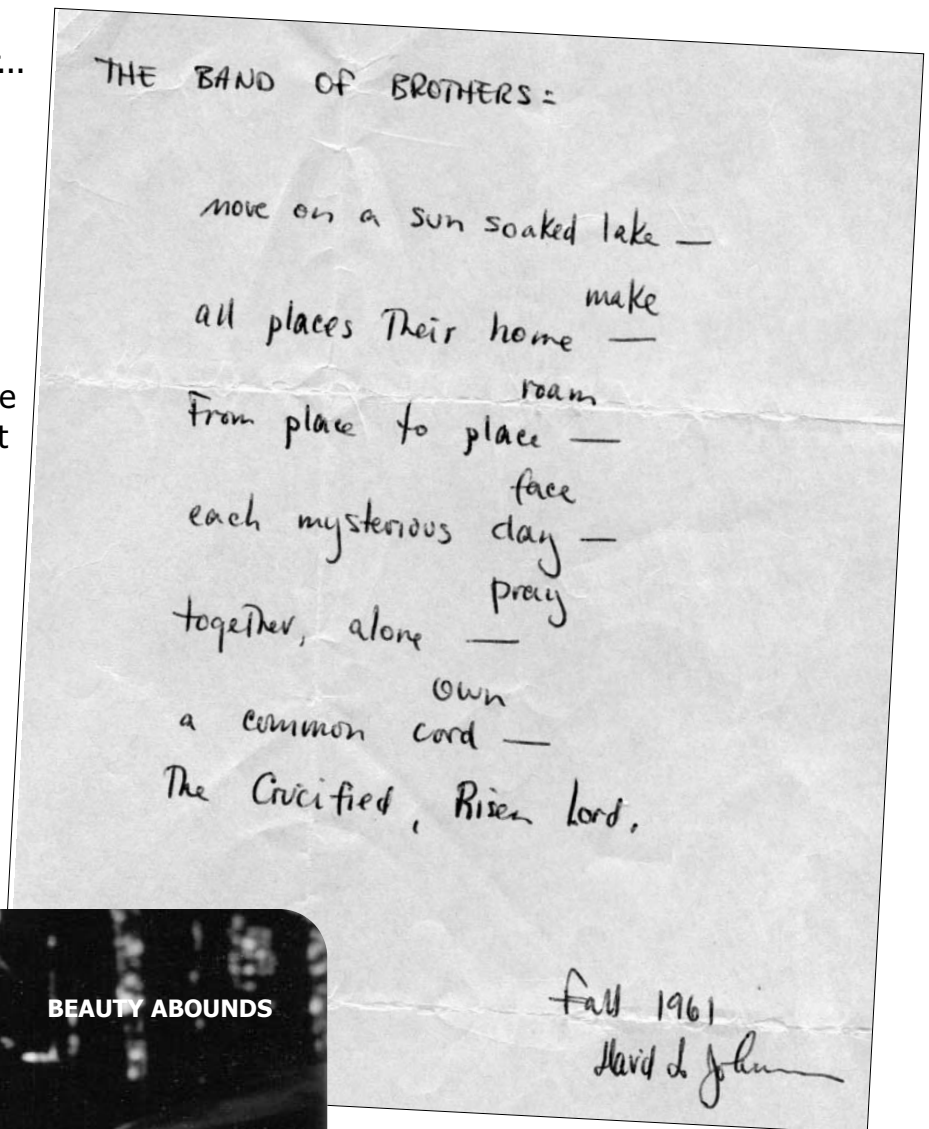 THE BAND OF BROTHERS:
move on a sun soaked lake —
make
all places Their home —
roam
From place to place —
face
each mysterious day —
pray
together, alone —
own
a common cord —
The Crucified, Risen Lord.
Fall 1961
David L Johnson
BEAUTY ABOUNDS